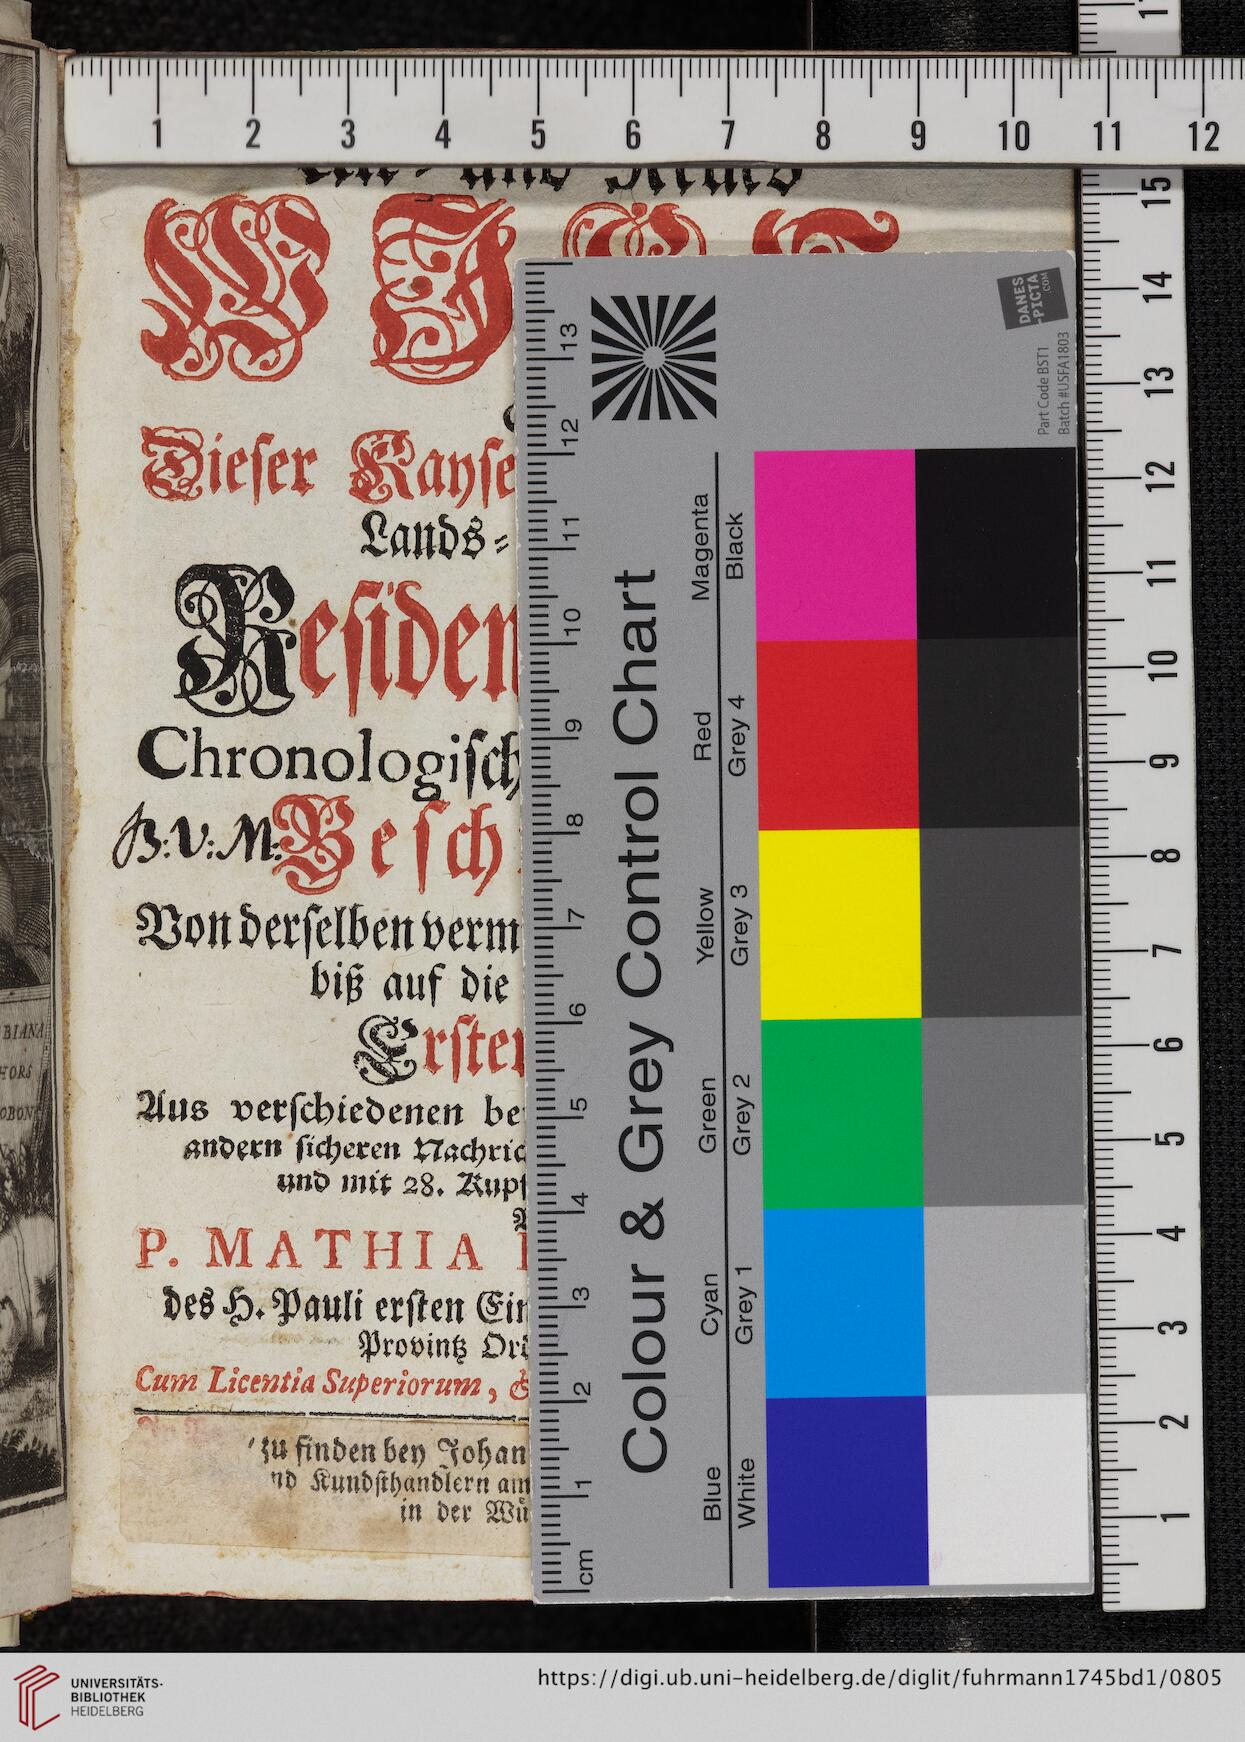 1 2 3 4 5 6 7 8 9 10 11 12
Alt- und Neues
W I
Dieser Kayse
Lands-
Residen
Chronologisch
B: V: M: Besch
Von derselben verm
biß auf die
Erster
Aus verschiedenen be
andern sicheren Nachric
und mit 28. Kupf
P. MATHIA
des H. Pauli ersten Ein
Provintz Ord
Cum Licentia Superiorum, &
zu finden bey Johan
nd Kundsthandlern am
in der Wü
BIANA
HORS
OBON
DANES
-PICTA
.COM
Part Code BST1
Batch #USFA1803
Colour & Grey Control Chart
Magenta Red Yellow Green Cyan Blue
Black Grey 4 Grey 3 Grey 2 Grey 1 White
13 12 11 10 9 8 7 6 5 4 3 2 1 cm
15 14 13 12 11 10 9 8 7 6 5 4 3 2 1
UNIVERSITÄTS-
BIBLIOTHEK
HEIDELBERG
https://digi.ub.uni-heidelberg.de/diglit/fuhrmann1745bd1/0805